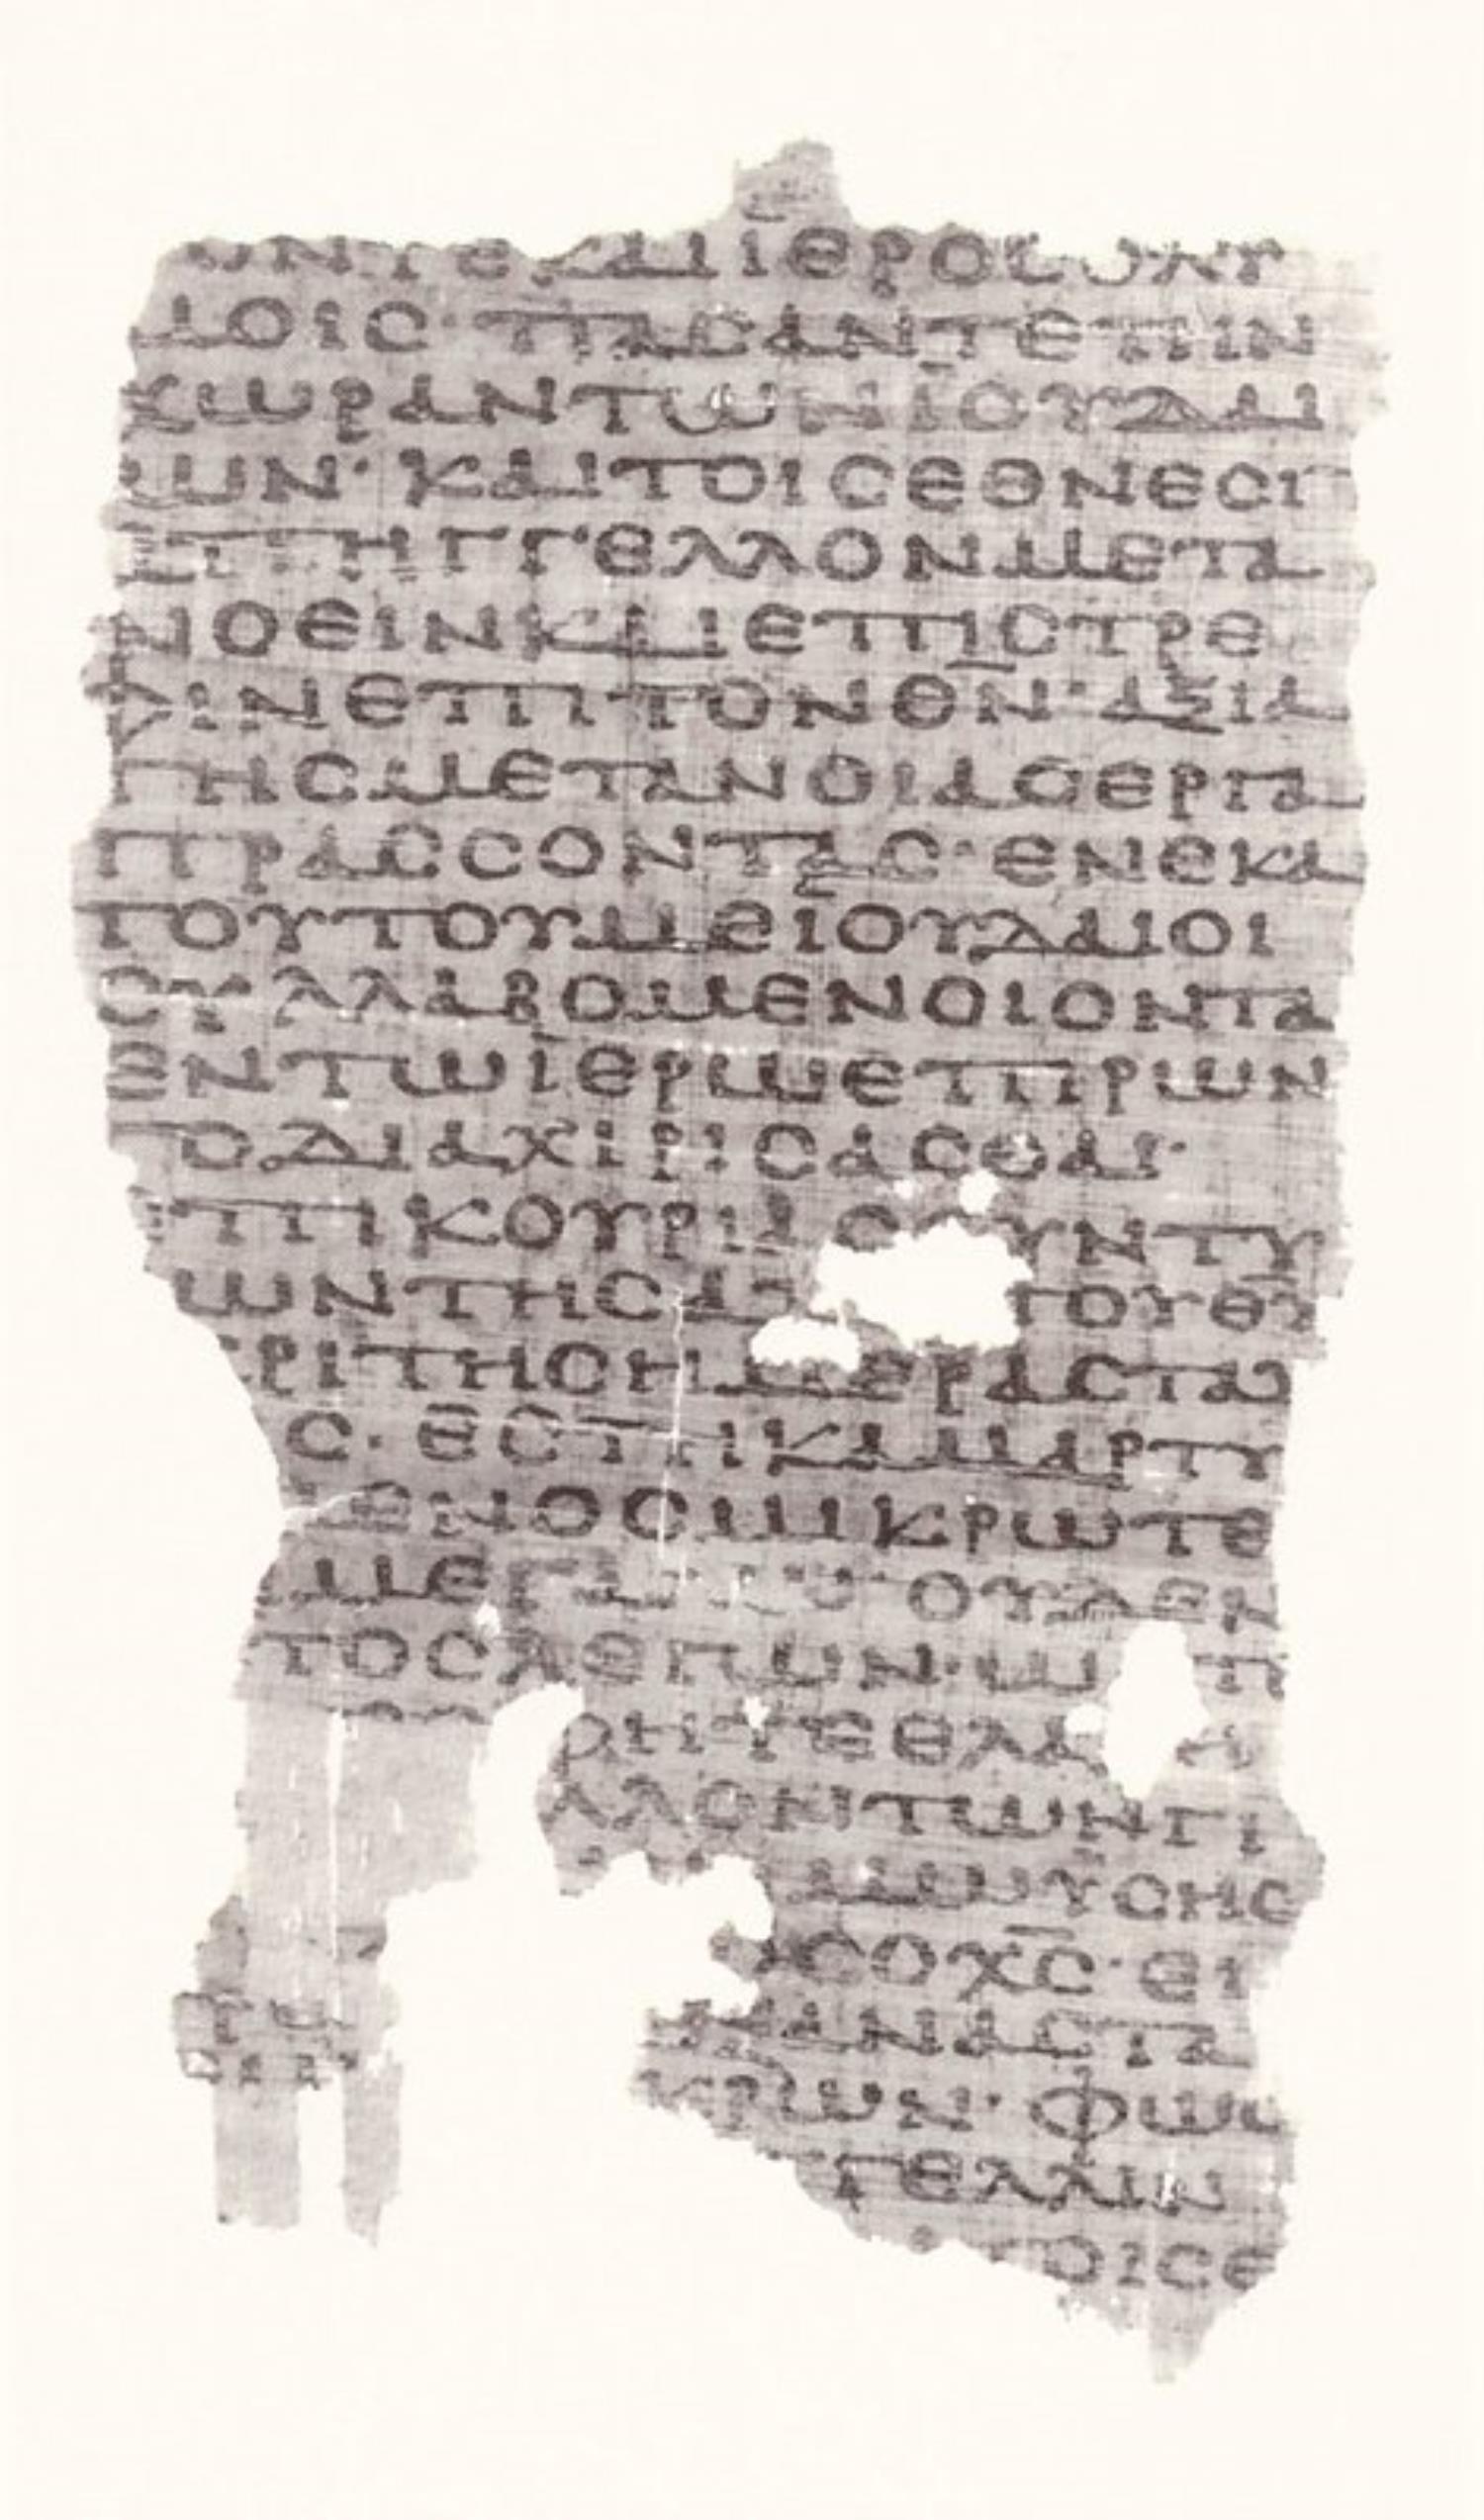 ΟΝΤΕΚΑΙΪΕΡΟϹΟΛΥ
ΜΟΙϹ· ΠΑϹΑΝΤΕΤΗΝ
ΧΩΡΑΝΤΩΝΪΟΥΔΑΙ
ΩΝ· ΚΑΙΤΟΙϹΕΘΝΕϹΙ
ΠΗΓΓ'ΕΛΛΟΝΜΕΤΑ
ΝΟΕΙΝΚΑΙΕΠΙϹΤΡΕ
ΦΙΝΕΠΙΤΟΝΘ̅Ν̅· ΑΞΙΑ
ΤΗϹΜΕΤΑΝΟΙΑϹΕΡΓΑ
ΠΡΑϹϹΟΝΤΑϹ· ΕΝΕΚΑ
ΤΟΥΤΟΥΜΕΙΟΥΔΑΙΟΙ
ϹΥΛΛΑΒΟΜΕΝΟΙΟΝΤΑ
ΕΝΤΩΪΕΡΩΕΠΙΡΩΝ
ΤΟΔΙΑΧΙΡΙϹΑϹΘΑΙ·
ΕΠΙΚΟΥΡΙΑϹΟΥΝΤΥ
ΩΝΤΗϹΑ ΤΟΥΘ̅Υ̅
ΡΙΤΗϹΗΜΕΡΑϹΤΑΥ
Ϲ· ΕϹΤΗΚΑΜΑΡΤΥ
ΜΕΝΟϹΜΙΚΡΩΤΕ
ΜΕΓΑΛΩ ΟΥΔΕΝ
ΤΟϹ ΩΝ· Ω
ΕΛΑ
ΛΛΟΝΤΩΝΓΙ
ΜΩΥϹΗϹ
ϹΟΧ̅Ϲ̅· ΕΙ
ΑΝΑϹΤΑ
ΚΡΩΝ· ΦΩ
ΓΕΛΛΙΝ
ΟΙϹΕ